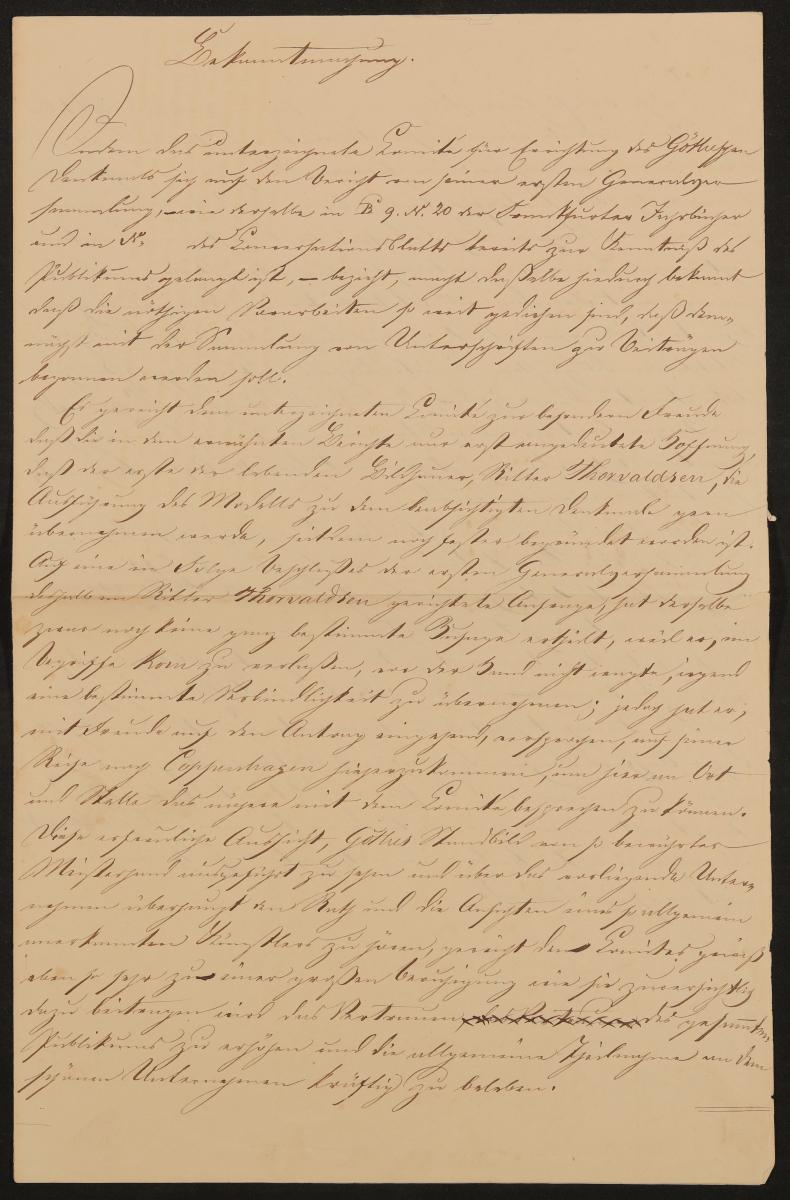 Bekanntmachung.
Indem das unterzeichnete Comité zur Errichtung des Götheschen
Denkmals sich auf den Bericht von seiner ersten Generalver-
sammlung, wie derselbe in B 9. N. 20 der Frankfurter Jahrbücher
und in N. des Conversationsblatts bereits zur Kenntniß des
Publikums gelangt ist, – bezieht, macht dasselbe hiedurch bekannt
daß die nöthigen Vorarbeiten so weit gediehen sind, daß dem-
nächst mit der Sammlung von Unterschriften zu Beiträgen
begonnen werden soll.
Es gereicht dem unterzeichneten Comité zur besondern Freude
daß die in dem erwähnten Berichte nur erst angedeutete Hoffnung,
daß der erste der lebenden Bildhauer, Ritter Thorvaldsen, die
Ausführung des Modells zu dem beabsichtigten Denkmale gern
übernehmen werde, seitdem noch fester begründet worden ist.
Auf eine in Folge Beschlusses der ersten Generalversammlung
deshalb an Ritter Thorvaldsen gerichtete Anfrage, hat derselbe
zwar noch keine ganz bestimmte Zusage ertheilt, weil er, im
Begriffe Rom zu verlassen, vor der Hand nicht wagte, irgend
eine bestimmte Verbindlichkeit zu übernehmen; jedoch hat er,
mit Freude auf den Antrag eingehend, versprochen, auf seiner
Reise nach Coppenhagen hieherzukommen, um hier an Ort
und Stelle das nähere mit dem Comité besprechen zu können.
Diese erfreuliche Aussicht, Göthes Standbild von so bewährter
Meisterhand ausgeführt zu sehen und über das vorliegende Unter-
nehmen überhaupt den Rath und die Ansichten eines so allgemein
anerkannten Künstlers zu hören, gereicht dem Comité gewiß
eben so sehr zu einer großen Beruhigung wie sie zuversichtlich
dazu beitragen wird das Vertrauen des gesammten
Publikums zu erhöhen und die allgemeine Theilnahme an dem
schönen Unternehmen kräftig zu beleben.